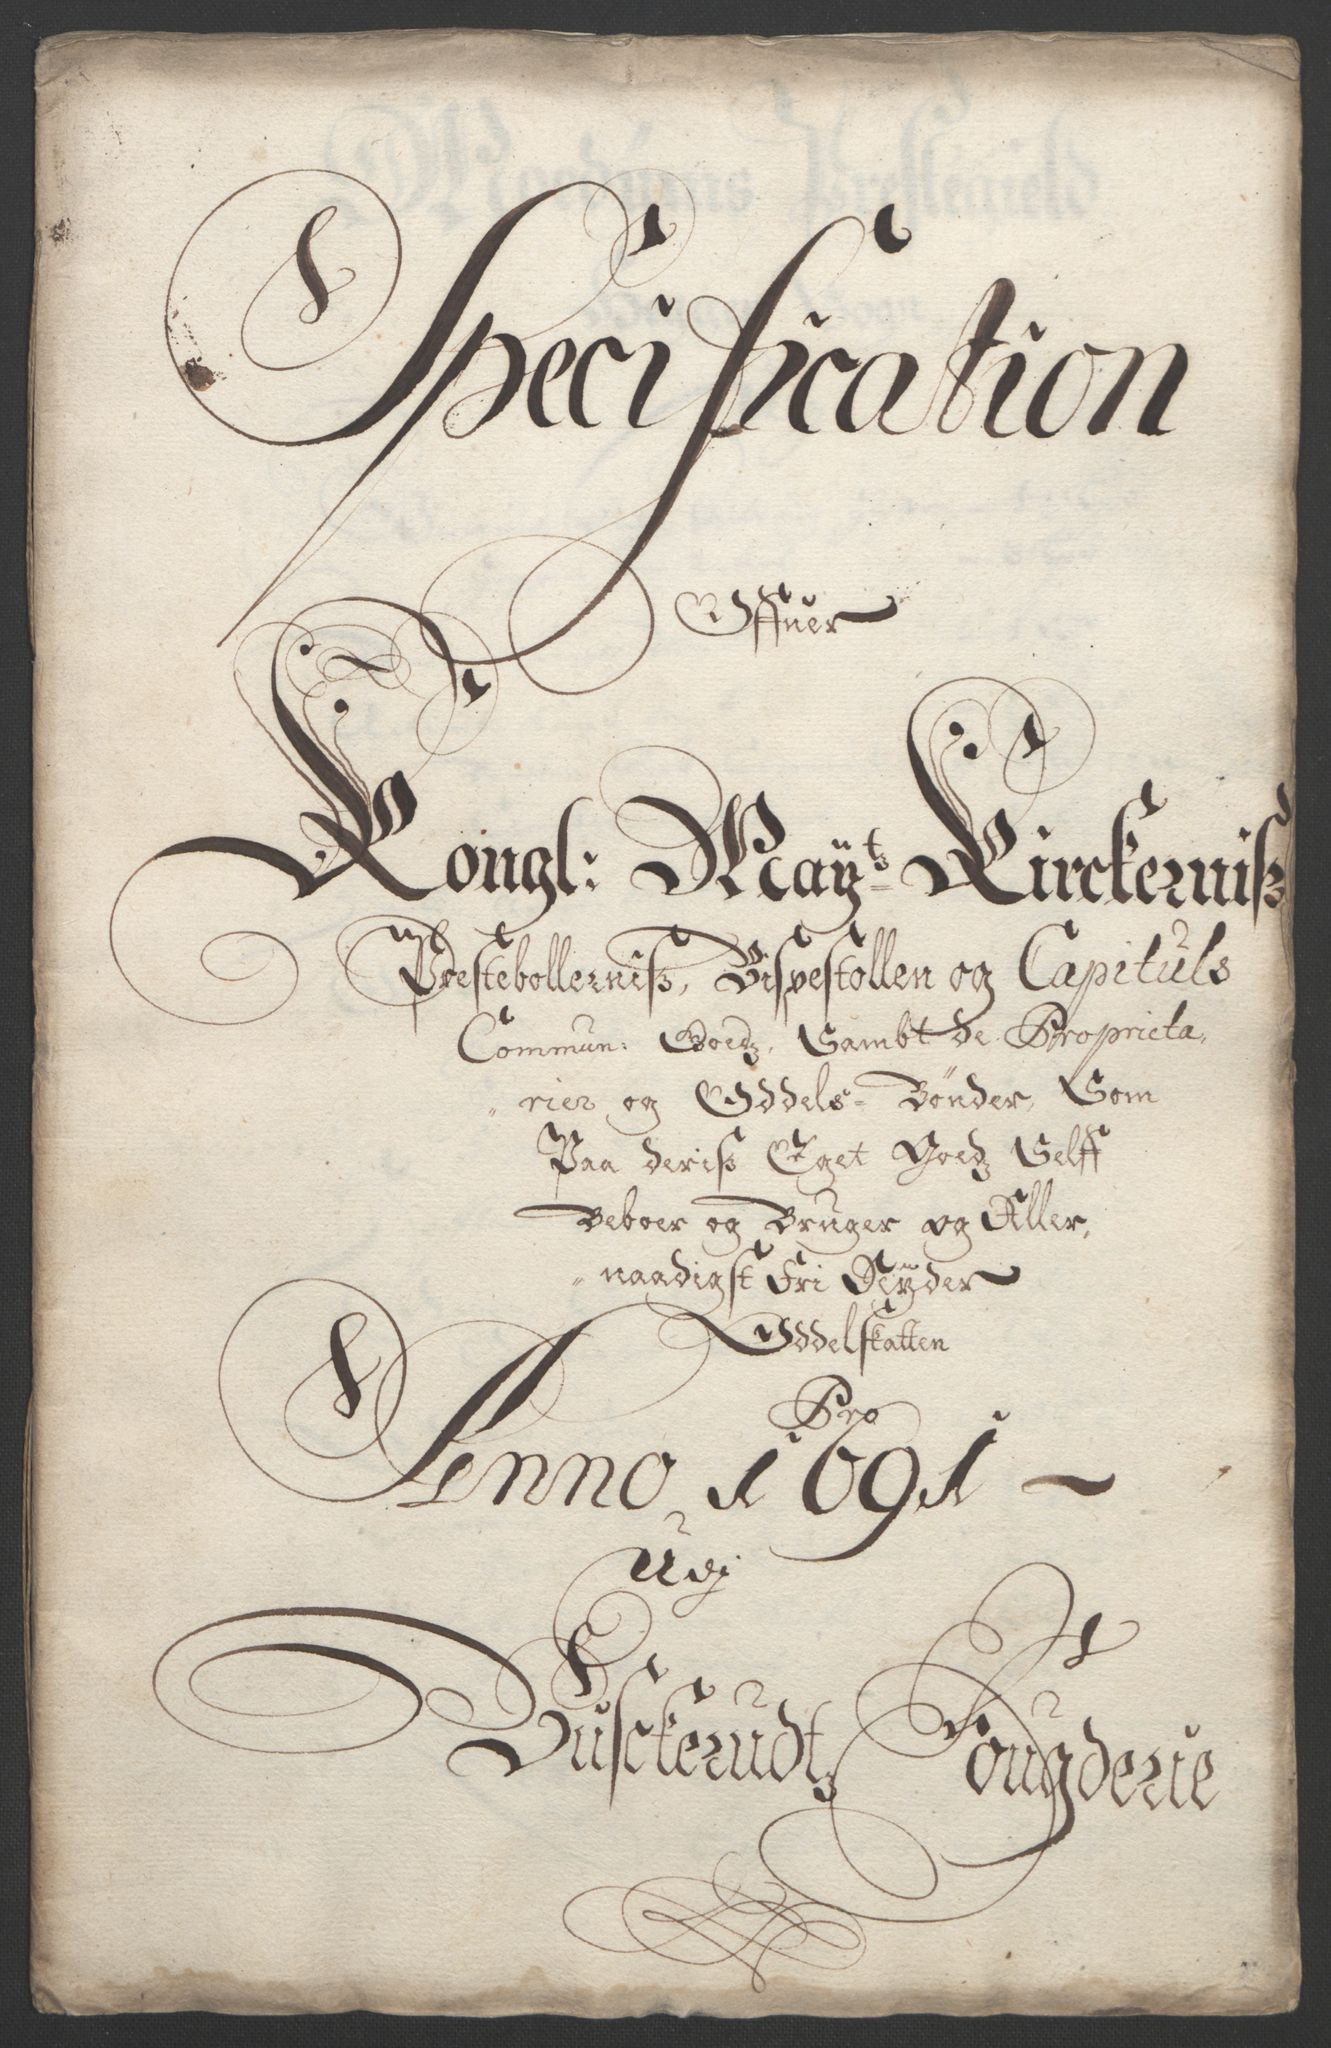 Specification
Offuer
Kongl: Maÿ:ts Kirckerniß
Prestebollerniß, Bispestollen og Capituls
Commun: Goedz, Sambt de Proprieta,
rier og Oddels= Bønder, Som
Paa deriß Eget Goedz Selff
Beboer og Bruger og Aller,
naadigst Fri Nÿder
Oddelskatten
Pro
Anno 1691
Udj
Busckerudtz Fougderie